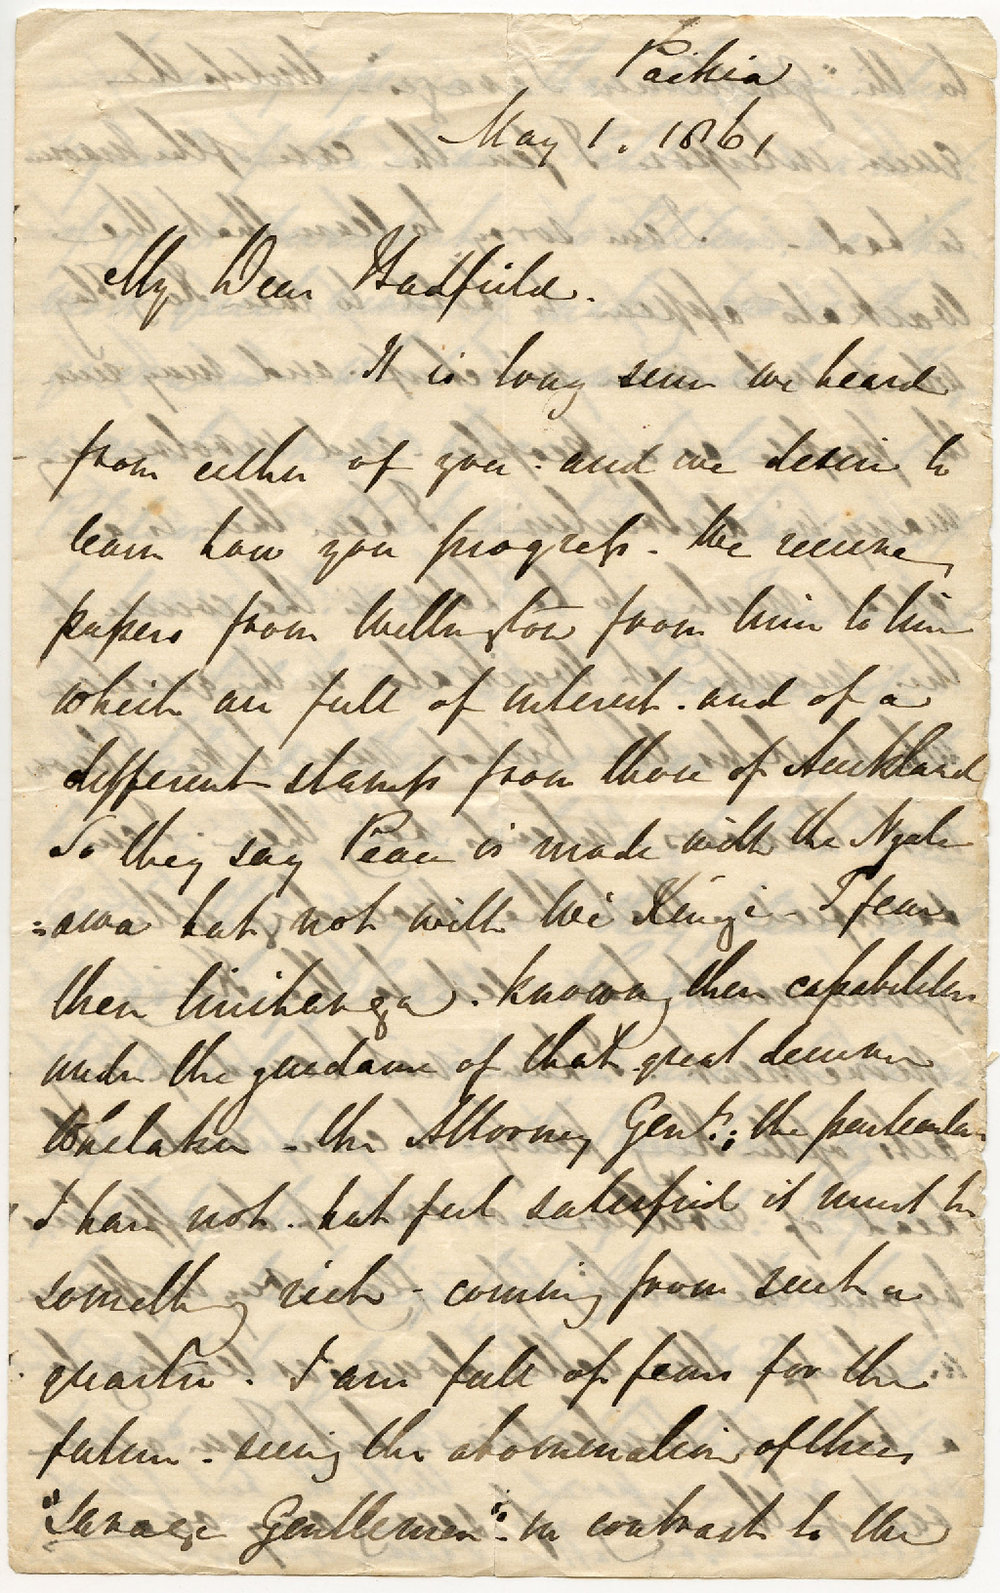 Paihia
May 1. 1861
My Dear Hadfield.
It is long since we heard
from either of you - and we desire to
learn how you progress - We receive
papers from Wellington from time to time
which are full of interest - and of a
different stamp from those of Auckland
So they say Peace is made with the Ngate
=awa but not with Wi Kingi - I fear
their tinihanga - knowing their capabilities
under the guidance of that great deceiver
Whitaker - the Attorney Genl.; the particulars
I have not - but feel satisfied it must be
something rich - coming from such a
quarter. I am full of fears for the
future - seeing the abomination of these
"Savage Gentlemen" - in contrast to the